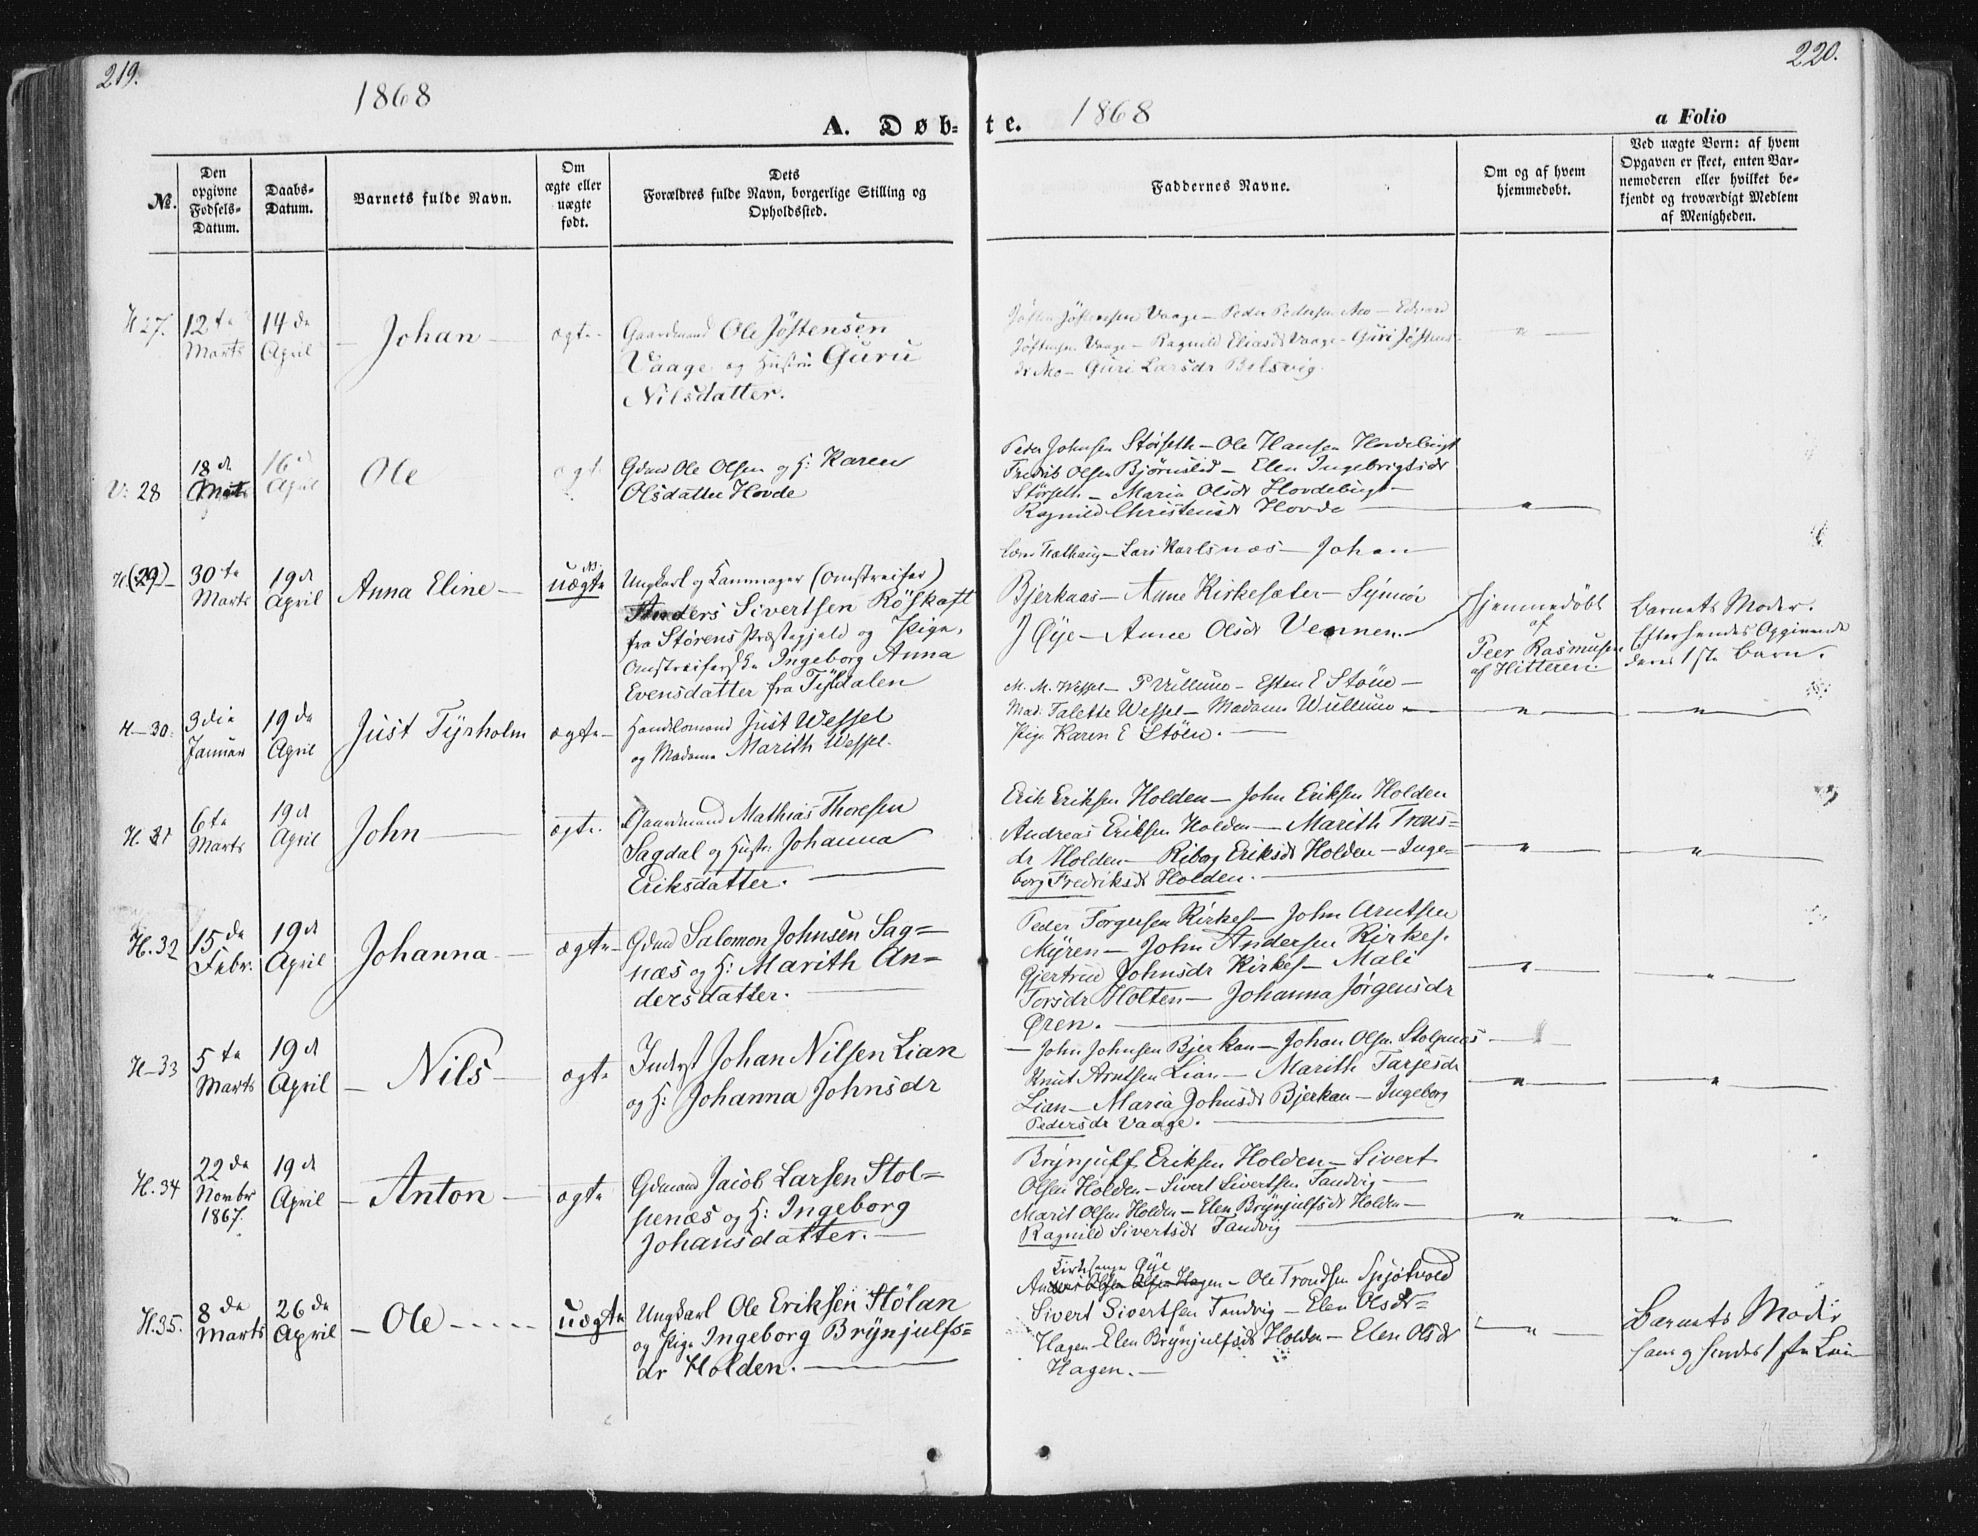 219.
1868
A. Døb-
№.
Den opgivne Fødsels-Datum.
Daabs-Datum.
Barnets fulde Navn.
Om ægte eller uægte født.
Dets
Forældres fulde Navn, borgerlige Stilling og
Opholdssted.
H 27. 12te Marts 14de April – Johan – ægte
Gaardmand Ole Jöstensen
Vaage og Hustru Guru
Nilsdatter.
V: 28 18de Marts 16de April Ole ægt.
Gdmd Ole Olsen og H: Karen
Olsdatter Hovde
H (29) – 30te Marts 19de April Anna Eline – uægte
Ungkarl og Kammager (Omstreifer)
Anders Sivertsen Röskaft
fra Störens Præstegjeld og Pige,
Omstreiferske Ingeborg Anna
Evensdatter fra Tÿdalen
H – 30. 3die Januar 19de April Just Tÿrholm ægte –
Handlsmand Just Wessel
og Madame Marith Wessel.
H. 31 6te Marts 19de April John – ægte.
Gaardmand Mathias Thoresen
Sagdal og Hustr. Johanna
Eriksdatter.
H. 32 15de Febr. 19de April Johanna – ægte –
Gdmd Salomon Johnsen Sag=
næs og H: Marith An=
dersdatter.
H – 33 5te Marts 19de April – Nils – ægte
Inderst Johan Nilsen Lian
og H: Johanna Johnsdr
H. 34 22de Novbr 1867. 19de April – Anton – ægte
Gdmand Jacob Larsen Stol=
penæs og H: Ingeborg
Johansdatter.
H. 35. 8de Marts 26de April – Ole – uægte
Ungkarl Ole Eriksen Stölan
og Pige Ingeborg Brÿnjulfs=
dr Holden.
220.
1868
te.
a Folio
Faddernes Navne.
Om og af hvem
hjemmedøbt.
Ved uægte Born: af hvem
Opgaven er skeet, enten Bar-
nemoderen eller hvilket be-
kjendt og troværdigt Medlem
af Menigheden.
Jösten Jöstensen Vaage – Peder Pedersen Mo – Edvard
Jöstensen Vaage – Ragnild Eliasdr Vaage – Guri Jöstens-
dr Mo – Guri Larsdr Belsvig.
"
Peder Johnsen Störseth – Ole Hansen Hovdebugt
Fredrik Olsen Björnslid – Elen Ingebrigtsdr
Störseth – Maria Olsdr Hovdebugt –
Ragnild Christensdr Hovde "
Lars Karlsnæs – Johan
Bjerkaas – Anne Kirkesæter –
J Öÿe – Anne Olsdr Vennen.
Hjemmedöbt
af
Peer Rasmusen
af Hitteren
Barnets Moder.
Efter hendes Opgivende
deres 1ste Barn.
M. M. Wessel – P Wullum – Esten E Stöen –
Mad. Talette Wessel – Madame Wullum " "
Pige Karen E Stöen.
Erik Eriksen Holden – John Eriksen Holden
Andreas Eriksen Holden – Marith Trons=
dr Holden – Riborg Eriksdr Holden – Inge=
borg Fredriksdr Holden. " "
Peder Torgersen Kirkes – John Arntsen
Mÿren – John Andersen Kirkes.
Gjertrud Johnsdr Kirkes – Mali
Torsdr Holten – Johanna Jörgensdr
Ören. " "
– John Johnsen Bjerkan – Johan Olsen Stolpnæs –
Knut Arntsen Lian – Marith Tarjesdr
Lian – Maria Johnsdr Bjerkan – Ingeborg
Pedersdr Vaage. " "
Brÿnjulf Eriksen Holden – Sivert
Olsen Holden – Sivert Sivertsen Tandvig –
Marit Olsen Holden – Elen Brÿnjulfsdr Holden –
Ragnild Sivertsdr Tandvig " "
Kirkesanger Öÿe
Anders Olsen Hagen – Ole Trondsen Spjötvold
Sivert Sivertsen Tandvig – Elen Olsdr=
Hagen – Elen Brÿnjulfsdr Holden – Elen Olsdr
Hagen. –
"
Barnets Moder
hans og hendes 1ste